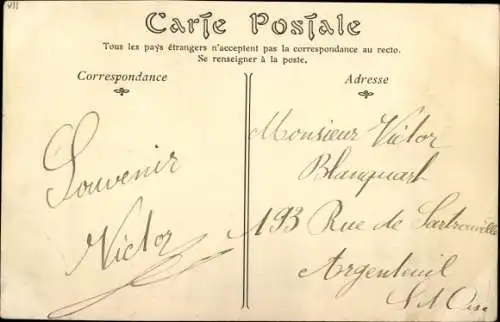 Carte Postale
Tous les pays étrangers n'acceptent pas la correspondance au recto.
Se renseigner à la poste,
Correspondance
Adresse
Souvenir
Victor
Monsieur Victor
Blanquart
193 Rue de Sartrouville
Argenteuil
S et Oise